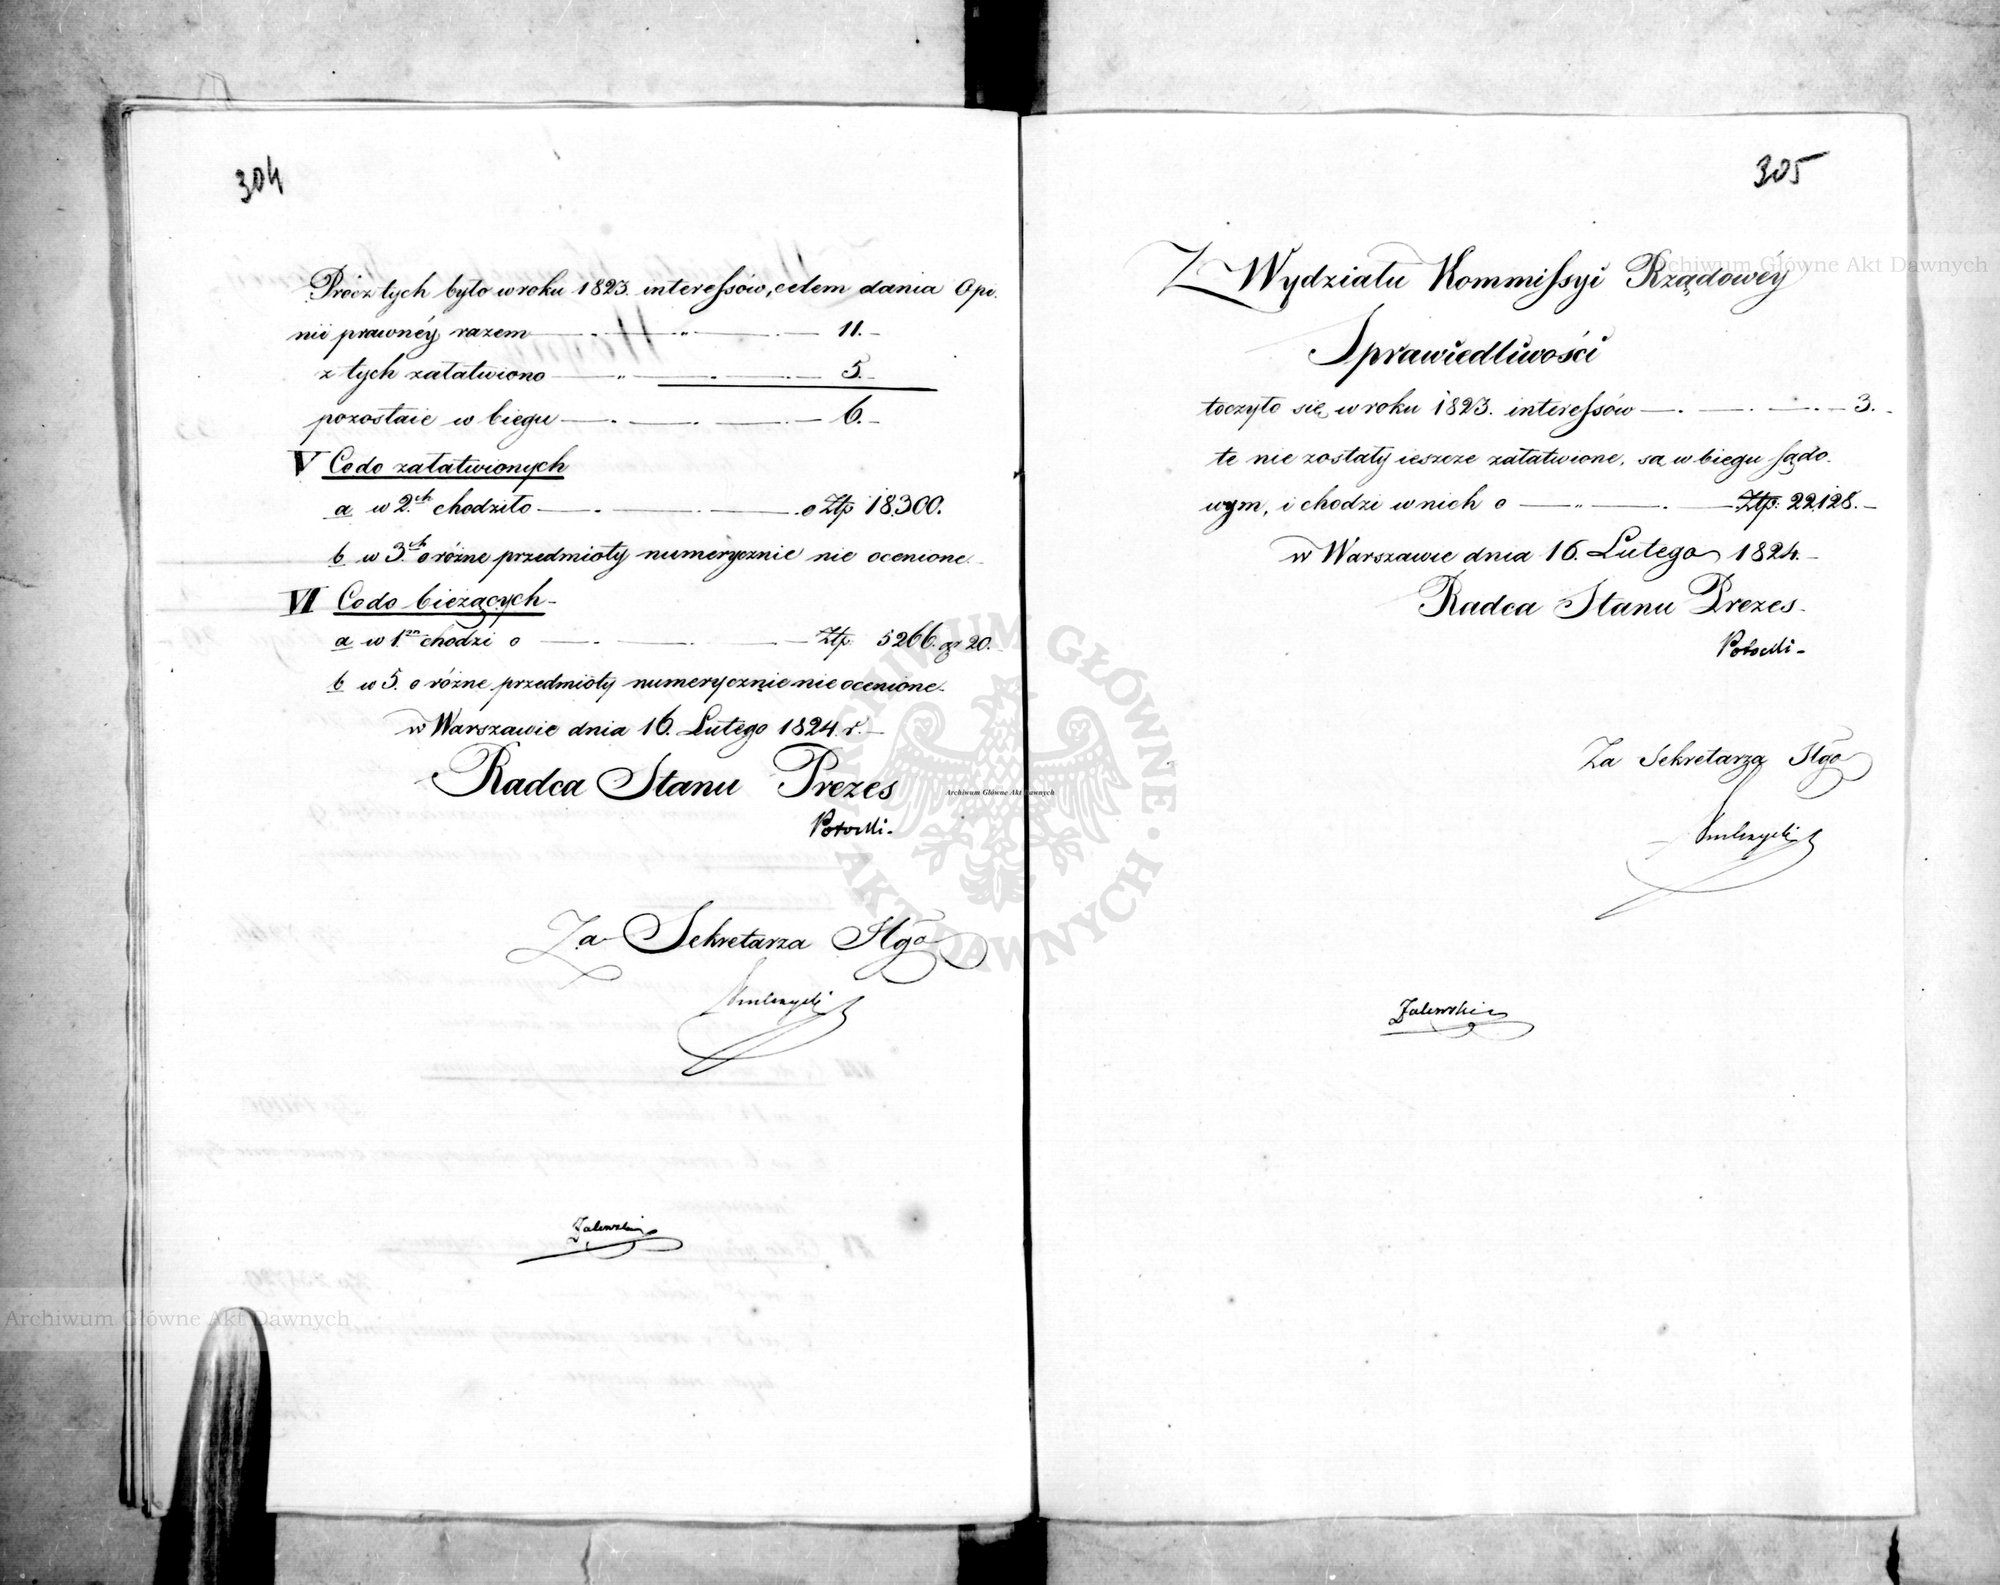 304
Prócz tych było w roku 1823. interessów, celem dania Opi-
nii prawnéy razem — „ — 11.—
z tych załatwiono — „ — 5.—
pozostaie w biegu — 6.—
V Co do załatwionych
a w 2.ch chodziło — o Ztp 18.300.
b w 3.ch o różne przedmioty numerycznie nie ocenione.—
VI Co do bieżących.—
a w 1.m chodzi o — Ztp. 5266. gr 20.
b w 5. o różne przedmioty numerycznie nie ocenione.—
w Warszawie dnia 16. Lutego 1824. r.—
Radca Stanu Prezes
Potocki.
Za Sekretarza Jlgo
Zalewski
305
Z Wydziału Kommissyi Rządowéy
Sprawiedliwości
toczyło się w roku 1823. interessów — 3.—
te nie zostały ieszcze załatwione, są w biegu sądo-
wym, i chodzi w nich o — „ — Ztp. 22.128.—
w Warszawie dnia 16. Lutego 1824.—
Radca Stanu Prezes.
Potocki.
Za Sekretarza Jlgo
Zalewski
Archiwum Główne Akt Dawnych
Archiwum Główne Akt Dawnych
Archiwum Główne Akt Dawnych
ARCHIWUM GŁÓWNE AKT DAWNYCH